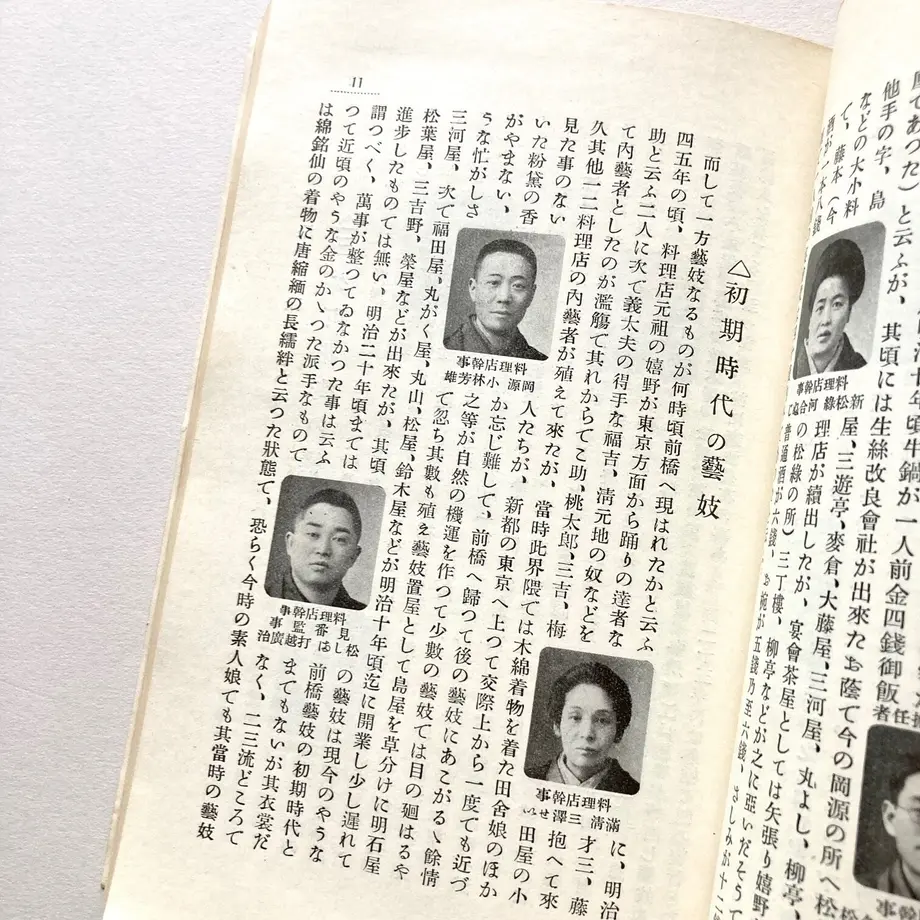 座であつた）と云ふが、其頃には生絲改良會社が出來たお蔭て今の岡源の所へ松
他手の字、島屋、三遊亭、麥倉、大藤屋、三河屋、丸よし、柳亭
などの大小料理店が續出したが、宴會茶屋としては矢張り嬉野
て、藤本（今の松綠の所）三丁樓、柳亭などが之に亞いだそうで
酒が一本八錢普通酒が六錢、お椀が五錢乃至六錢、さしみが十二
治十年頃牛鍋が一人前金四錢御飯
料理店幹事
新松綠 河合ぬて
任者
幹事
11
△初期時代の藝妓
而して一方藝妓なるものが何時頃前橋へ現はれたかと云ふに、明治
四五年の頃、料理店元祖の嬉野が東京方面から踊りの達者な才三、藤
助と云ふ二人に次て義太夫の得手な福吉、淸元地の奴などを抱へて來
て內藝者としたのが濫觴で其れからてこ助、桃太郎、三吉、梅田屋の小
久其他一二料理店の內藝者が殖えて來たが、當時此界隈では木綿着物を着た田舍娘のほか
見た事のない人たちが、新都の東京へ上つて交際上から一度でも近づ
いた粉黛の香か忘じ難して、前橋へ歸つて後の藝妓にあこがるゝ餘情
がやまない、之等が自然の機運を作つて少數の藝妓ては目の廻はるや
うな忙がしさて忽ち其數も殖え藝妓置屋として島屋を草分けに明石屋
三河屋、次て福田屋、丸がく屋、丸山、松屋、鈴木屋などが明治十年頃迄に開業し少し遲れて
松葉屋、三吉野、榮屋などが出來たが、其頃の藝妓は現今のやうな
進步したものては無い、明治二十年頃までは前橋藝妓の初期時代と
謂つべく、萬事が整つてゐなかつた事は云ふまでもないが其衣裳だ
つて近頃のやうな金のかゝつた派手なものてなく、二三流どころて
は綿銘仙の着物に唐縮緬の長繻絆と云つた狀態て、恐らく今時の素人娘ても其當時の藝妓
料理店幹事
岡源 小林芳雄
料理店幹事
滿淸 三澤せい
料理店幹事
見番監事
松しほ 打越廣治